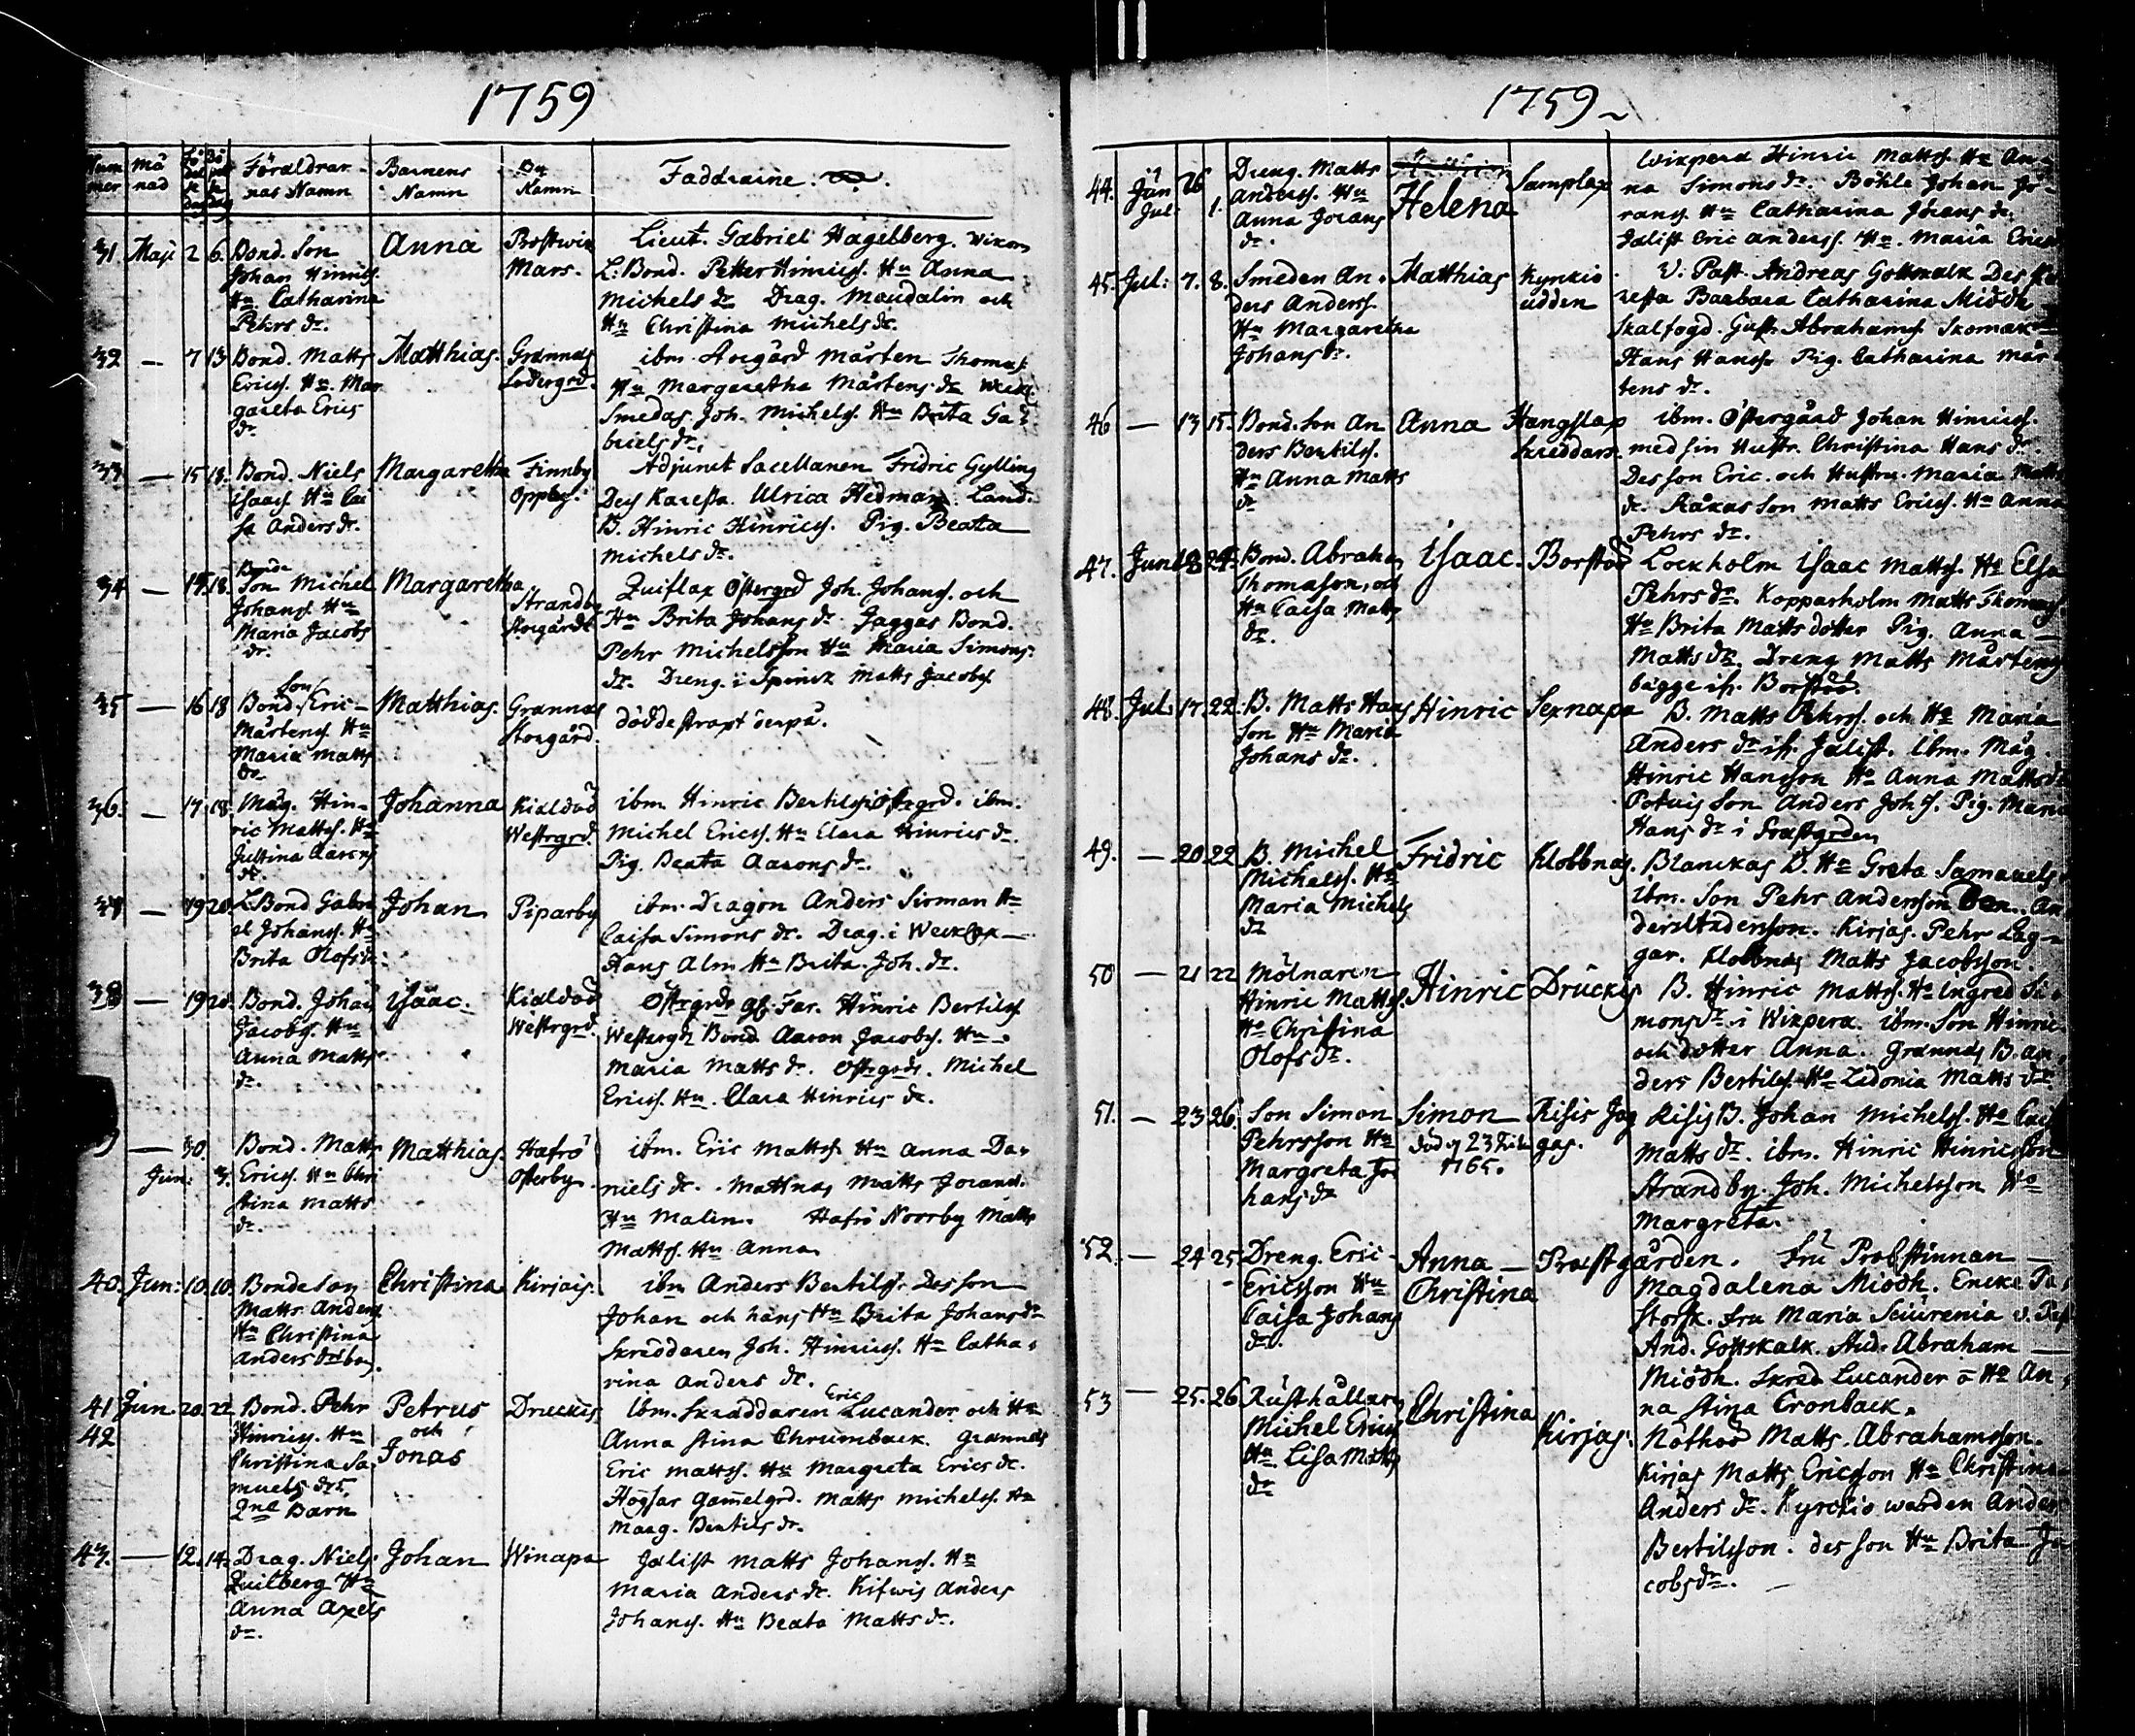 1759
Num mer
Må nad
Fö del se dag
Dö pel se dag
Föräldrar
nas Namn
Barnens
Namn
By
Namn
Faddrarne.
31 Maji 2 6. Bond. Son
Johan Hinrics.
Hu Catharina
Pehrs dr.
Anna
Prostwik
Mars.
Lieut. Gabriel Hagelberg. Wikom
L: Bond. Petter Hinricss. Hu Anna
Michels dr Drag. Maudalin och
Hu Christina Michels dr.
32 — 7 13 Bond. Matts
Ericss. Hu. Mar
gareta Erics
dr
Matthias.
Grannas
Södergrd.
ibm. Storgård Mårten Thomas
Hu Margaretha Mårtens dr
Smedas Joh. Michelss. Hu Brita Ga
briels dr.
33 — 15 18. Bond. Niels
Isaacss. Hu Cai
sa Anders dr.
Margaretha
Finnby
Oppby.
Adjunct Sacellanen Fridric Gylling
Des Karessa. Ulrica Hedman. Land.
B. Hinric Hinricss. Pig. Beata
Michels dr.
34 — 15. 18. Bonde
Son Michel
Johanss. Hu
Maria Jacobs
dr.
Margaretha
Strandby
Storgårds
Quiflax Östergrd Joh. Johanss. och
Hu Brita Johans dr. Jaggas Bond.
Pehr Michelsson Hu Maria Simons
dr. Dreng. i Spinck Matts Jacobss.
35 — 16 18 Bond. Son Eric
Mårtenss. Hu
Maria Matts
dr
Matthias.
Grannas
Storgård.
dödde straxt derpå.
36. — 17. 18. Måg. Hin-
ric Mattss. Hu
Justina Aarons
dr.
Johanna
Kialdad
Westrgrd.
ibm Hinric Bertilss Östrgrd. ibm.
Michel Ericss. Hu Clara Hinrics dr.
Pig. Beata Aarons dr.
37 — 19 20. L. Bond Gabri
el Johanss. Hu
Brita Olofs dr.
Johan
Piparby
ibm. Dragon Anders Sirman Hu
Caisa Simons dr. Drag. i Wecklax
Hans Alm Hu Brita Joh. dr.
38 — 19 20. Bond. Johan
Jacobss. Hu
Anna Matts
dr.
Isaac.
Kialdad
Westrgrd.
Östrgrds gl. Far. Hinric Bertilss
Westergds Bond Aaron Jacobss. Hu
Maria Matts dr. Östrgrds. Michel
Ericss. Hu. Clara Hinrics dr.
— 30.
Jun: 3. Bond. Matts
Ericss. Hu Chri
stina Matts
dr.
Matthias.
Hafrö
Österby.
ibm. Eric Mattss. Hu Anna Da-
niels dr. Mattnas Matts Joranss.
Hu Malin. Hafrö Norrby Matts
Mattss. Hu Anna
40. Jun: 10. 10. Bondeson
Matts Anderss
Hu Christina
Anders dr ibm.
Christina
Kirjais.
ibm Anders Bertilss. Des son
Johan och hans Hu Brita Johans dr
Skreddaren Joh. Hinricss. Hu Catha-
rina Anders dr.
41 Jun. 20. 22. Bond. Pehr
42 Hinricss. Hu
Christina Sa
muels dr.
2ne Barn
Petrus
och
Jonas
Druckis
ibm. Skraddaren Eric Lucander och Hu
Anna Stina Chrumback. Grannas
Eric Mattss. Hu Margreta Erics dr.
Högsar Gamelgrd. Matts Michelss. Hu
Marg. Bertils dr.
43. — 12. 14. Drag. Niels
Quilberg Hu
Anna Axels
dr.
Johan
Winapa
Jälist Matts Johanss. Hu
Maria Anders dr. Kifwis Anders
Johanss. Hu Beata Matts dr.
1759
44. Jun 26
Jul: 1. Dreng. Matts
Anderss. Hu
Anna Jorans
dr.
Helena
Samplax
Wikpera Hinric Mattss. Hu An-
na Simons dr. Böhle Johan Jö-
ranss. Hu Catharina Jörans dr.
Jälist Eric Anderss. Hu. Maria Erics
45. Jul: 7. 8. Smeden An-
ders Anderss.
Hu Margaretha
Johans dr.
Matthias
Kyrckio
udden
V. Past. Andreas Gottskalk Des Ka
ressa Barbara Catharina Miödh
Skalfogd. Gust. Abrahamss. Skomak
Hans Hanss. Pig. Catharina Mår
tens dr.
46 — 13 15. Bond. Son An
ders Bertilss.
Hu Anna Matts
dr
Anna
Hangslax
Skreddars.
ibm. Östergård Johan Hinricss.
med sin Hustr. Christina Hans dr.
Des son Eric. och Hustru. Maria Matts
dr. Råkas Son Matts Ericss. Hu Anna
Pehrs dr.
47. Jun 18 24. Bond. Abraham
Thomason, och
Hu Caisa Matts
dr.
Isaac.
Borstöö
Lockholm Isaac Mattss. Ho Elsa
Pehrs dr. Kopparholm Matts Thomass.
Ho Brita Matts dotter Pig. Anna
Matts dr. Dreng Matts Mårtens
bägge ifr. Borstöö.
48. Jul. 17. 22. B. Matts Hans
Son Hu Maria
Johans dr.
Hinric
Sexnapa
B. Matts Pehrss. och Ho Maria
Anders dr ifr. Jälist. ibm. Måg.
Hinric Hansson Ho Anna Matts dr
Potuis Son Anders Johs. Pig. Maria
Hans dr i Prästgrden
49. — 20. 22 B. Michel
Michelss. Ho
Maria Michels
dr
Fridric
Klobbnas.
Blanckas D. Hu Greta Samauels
ibm. Son Pehr Andersson An
ders Andersson. Kirjas. Pehr Lag-
gar. Klobbnas Matts Jacobsson
50 — 21 22 Mölnaren
Hinric Mattss.
Ho Christina
Olofs dr.
Hinric
Druckis
B. Hinric Mattss. Ho Ingred Si-
mons dr i Wikpera. ibm. Son Hinric
och dotter Anna. Grannas B. An-
ders Bertilss. Ho Zidonia Matts dr
51. — 23 26. Son Simon
Pehrsson Hu
Margreta Jo
hans dr
Simon
död 23
1765.
Risis Jog
gas.
Risis B. Johan Michelss. Ho Cais
Matts dr. ibm. Hinric Hinricsson
Strandby. Joh. Michelsson Ho
Margreta.
52. — 24 25 Dreng. Eric
Ericsson Hu
Caisa Johans
dr.
Anna
Christina
Præstgården.
Fru Probstinnan
Magdalena Miödh. Encke Pa
storsk. Fru Maria Sciurenia v. Past
And. Gottskalk. Stud. Abraham
Miödh. Skred Lucander o Ho An
na Stina Cronback.
53 — 25. 26 Rusthållaren
Michel Erics
Hu. Lisa Matts
dr
Christina
Kirjas.
Nöthoo Matts. Abrahamsson.
Kirjas Matts Ericsson Hu Christina
Anders dr. Kyrckio warden Anders
Bertilsson. des son Hu Brita Ja
cobs dr.